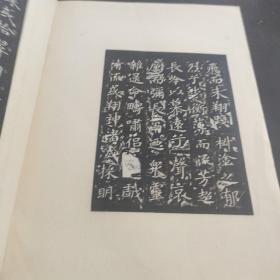 飛而未翔踐椒塗之郁
烈步蘅薄而流芳超
長吟以慕遠兮聲哀
厲而彌長爾迺衆靈
雜遝命疇嘯侶或戲
清流或翔神渚或採明